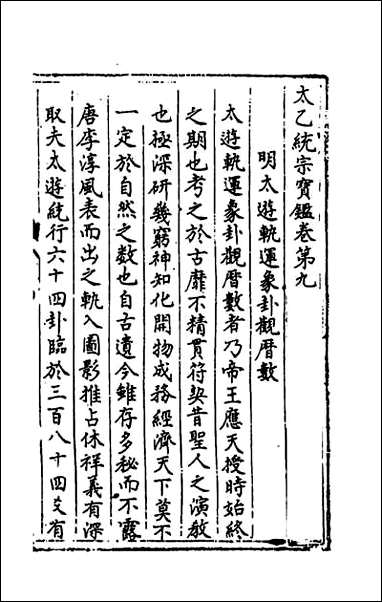 太乙統宗寶鑑卷第九
明太遊軌運象卦觀曆數
太遊軌運象卦觀曆數者乃帝王應天授時始終
之期也考之於古靡不精貫符契昔聖人之演教
也極深研幾窮神知化開物成務經濟天下莫不
一定於自然之数也自古遺今雖存多秘而不露
唐李淳風表而出之軌入圖影推占休祥義有深
取夫太遊統行六十四卦臨於三百八十四爻有